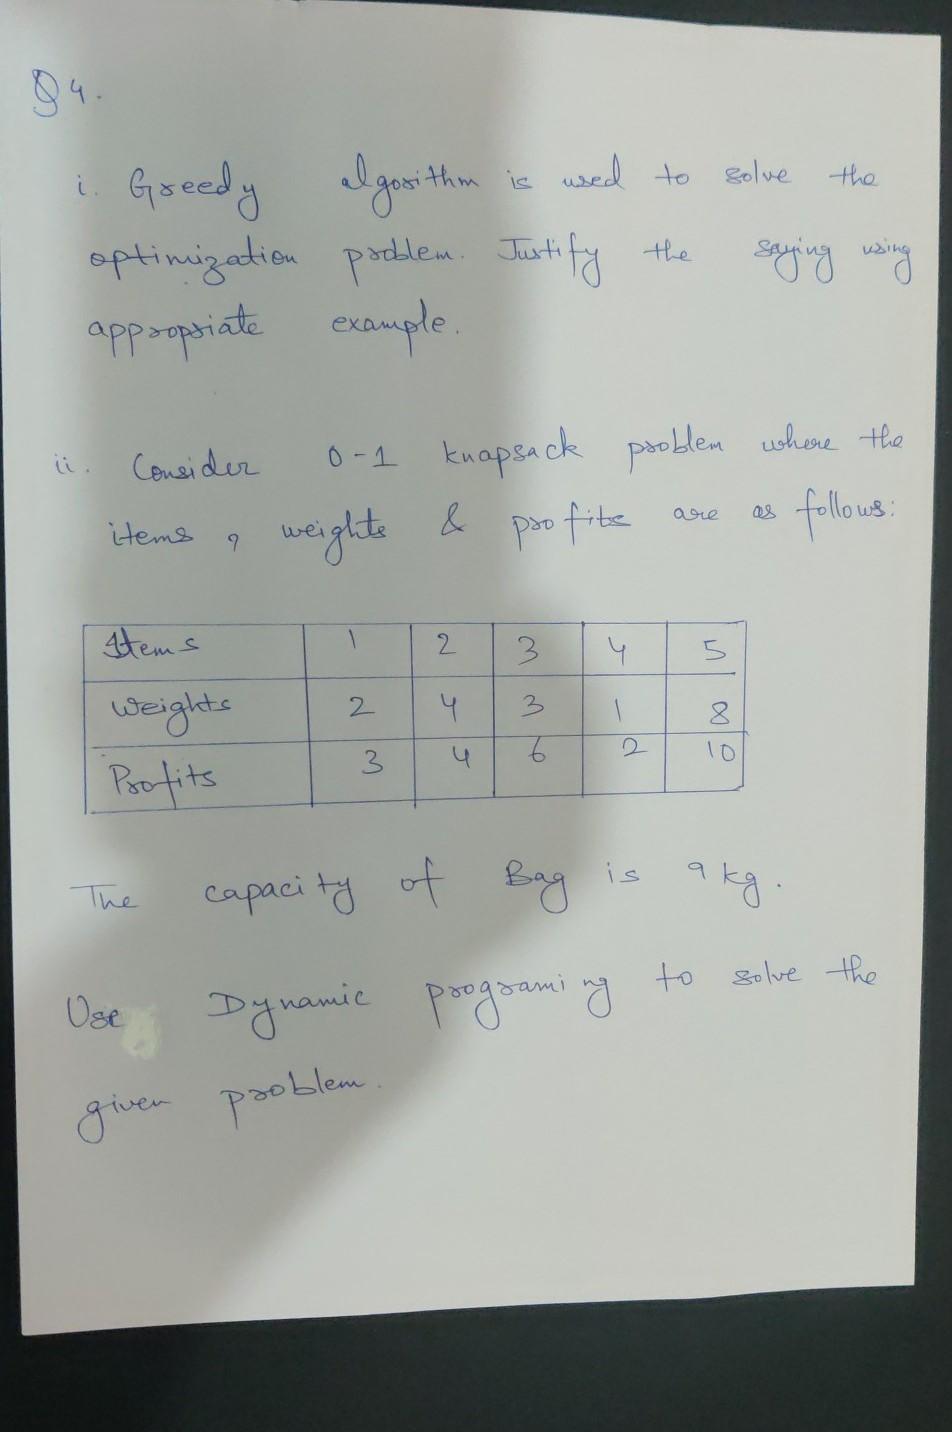 Q4.
i. Greedy algorithm is used to solve the
optimization problem. Justify the saying using
appropriate example.
ii. Consider 0-1 knapsack problem where the
items, weights & profits are as follows:
Items 1 2 3 4 5
Weights 2 4 3 1 8
Profits 3 4 6 2 10
The capacity of Bag is 9 kg.
Use Dynamic programing to solve the
given problem.